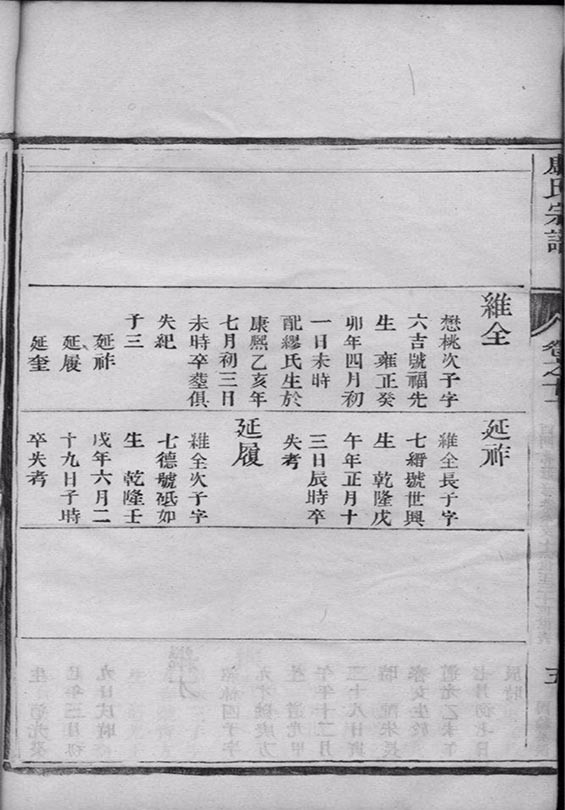 氏宗譜
卷之十
五
維全
懋桃次子字
六吉號福先
生 雍正癸
卯年四月初
一日未時
配繆氏生於
康熙乙亥年
七月初三日
未時卒塟俱
失紀
子三
延祚
延履
延奎
延祚
維全長子字
七縉號世興
生 乾隆戊
午年正月十
三日辰時卒
失考
延履
維全次子字
七德號砥如
生 乾隆壬
戌年六月二
十九日子時
卒失考